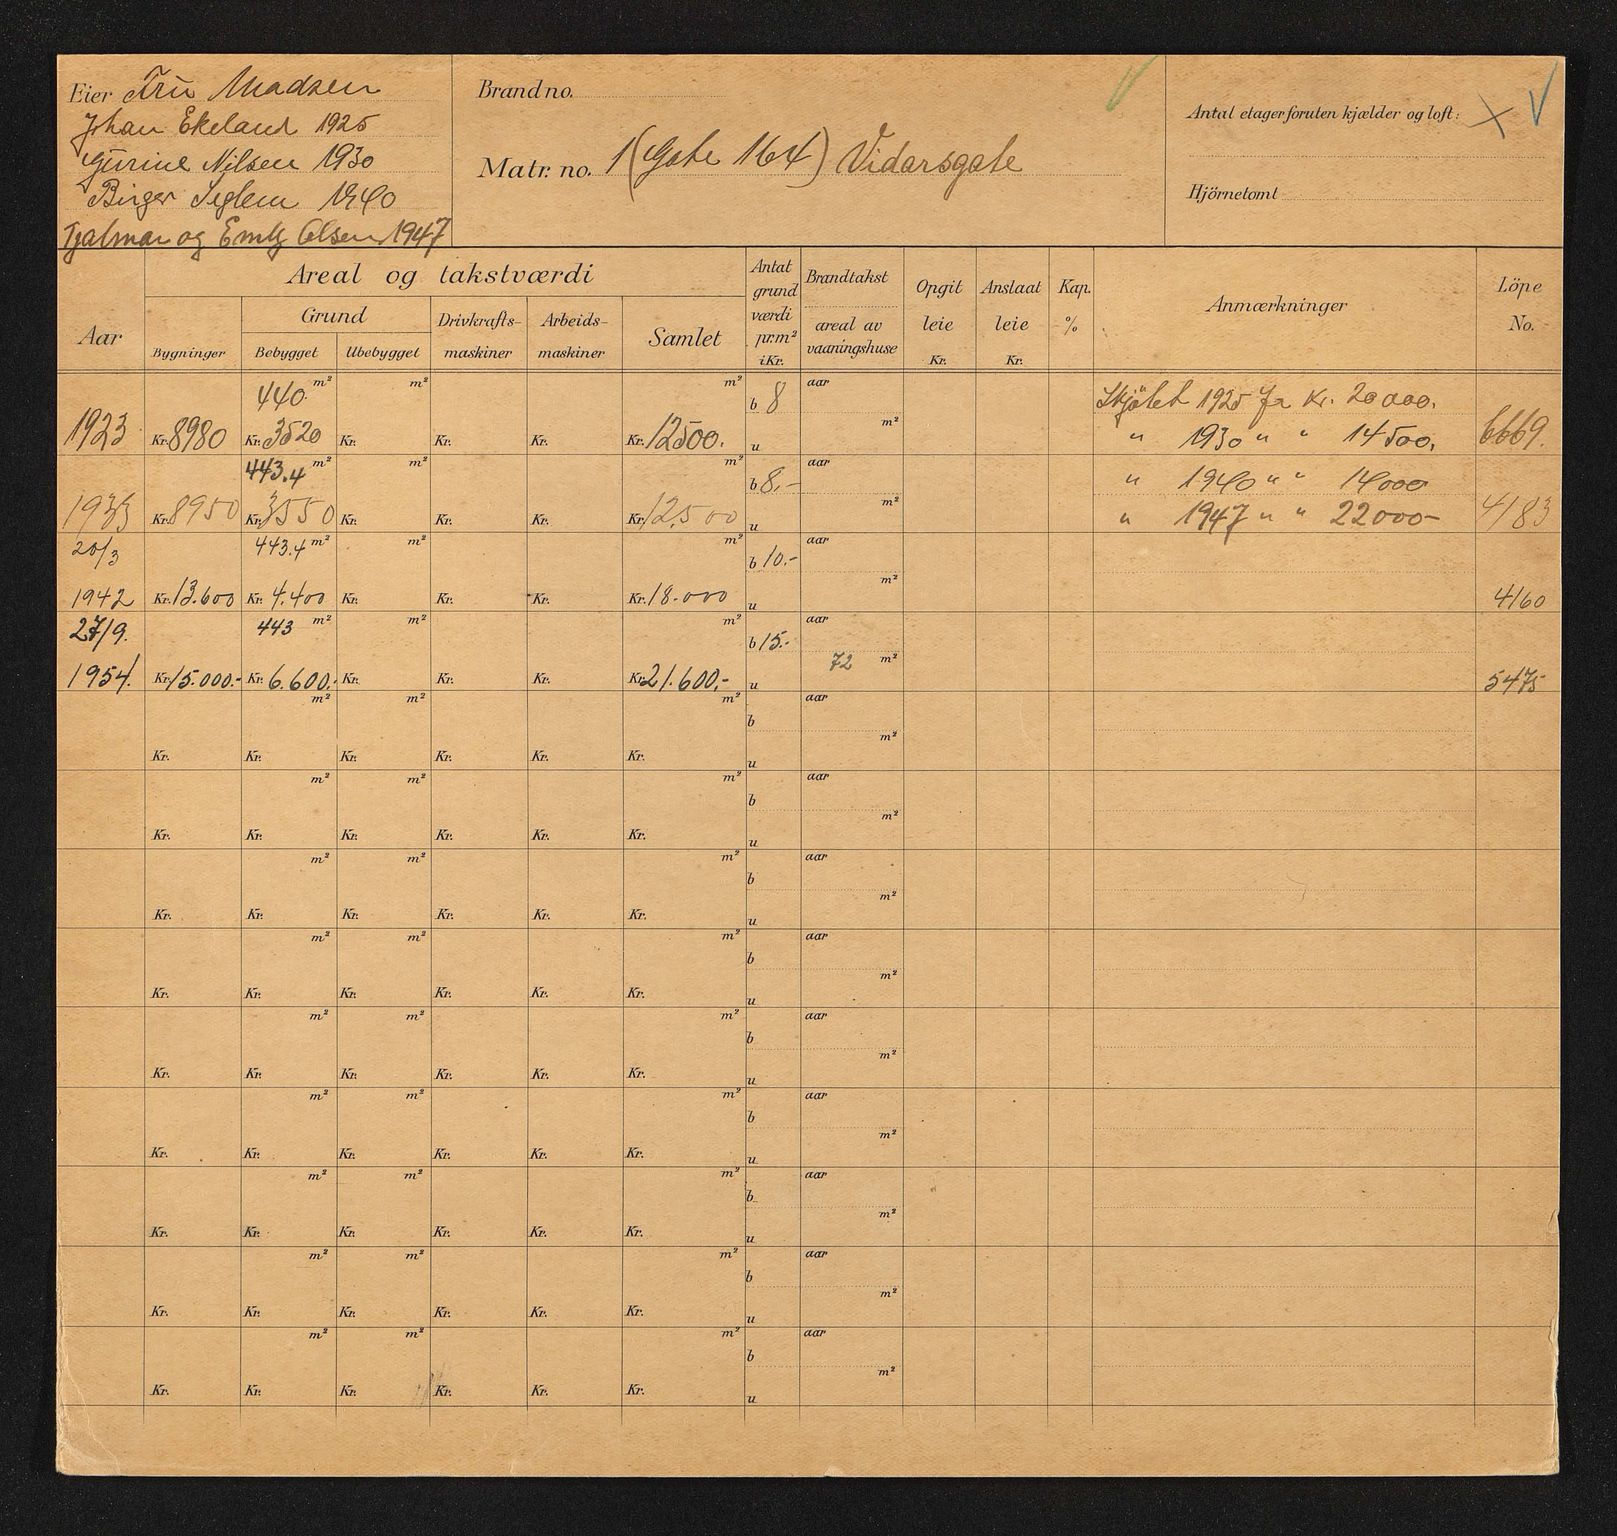 Eier Fru Madsen
Johan Ekeland 1925
Gurine Nilsen 1930
Birger Seglem 1940
Hjalmar og Emly Olsen 1947
Brand no.
Matr. no. 1 (Gate 164) Vidarsgate
Antal etager foruten kjælder og loft: X V
Hjörnetomt
Aar
Areal og takstværdi
Bygninger
Grund
Bebygget Ubebygget
Drivkrafts-maskiner
Arbeids-maskiner
Samlet
Antat grund værdi pr.m² i Kr.
Brandtakst
areal av vaaningshuse
Opgit leie Kr.
Anslaat leie Kr.
Kap. %
Anmærkninger
Löpe No.
440 m² m² m² b 8 aar Skjötet 1925 for Kr. 20 000.
1923 Kr. 8980 Kr. 3520 Kr. Kr. Kr. Kr. 12500. u m² " 1930 " " 14500, 6669.
443.4 m² m² m² b 8,- aar " 1940 " " 14000
1933 Kr. 8950 Kr. 3550 Kr. Kr. Kr. Kr. 12,500 u m² " 1947 " " 22000- 4183
20/3 443.4 m² m² m² b 10.- aar
1942 Kr. 13.600 Kr. 4.400 Kr. Kr. Kr. Kr. 18.000 u m² 4160
27/9. 443 m² m² m² b 15.- aar
1954. Kr. 15.000.- Kr. 6.600.- Kr. Kr. Kr. Kr. 21.600,- u 72 m² 5475
m² m² m² b aar
Kr. Kr. Kr. Kr. Kr. Kr. u m²
m² m² m² b aar
Kr. Kr. Kr. Kr. Kr. Kr. u m²
m² m² m² b aar
Kr. Kr. Kr. Kr. Kr. Kr. u m²
m² m² m² b aar
Kr. Kr. Kr. Kr. Kr. Kr. u m²
m² m² m² b aar
Kr. Kr. Kr. Kr. Kr. Kr. u m²
m² m² m² b aar
Kr. Kr. Kr. Kr. Kr. Kr. u m²
m² m² m² b aar
Kr. Kr. Kr. Kr. Kr. Kr. u m²
m² m² m² b aar
Kr. Kr. Kr. Kr. Kr. Kr. u m²
m² m² m² b aar
Kr. Kr. Kr. Kr. Kr. Kr. u m²